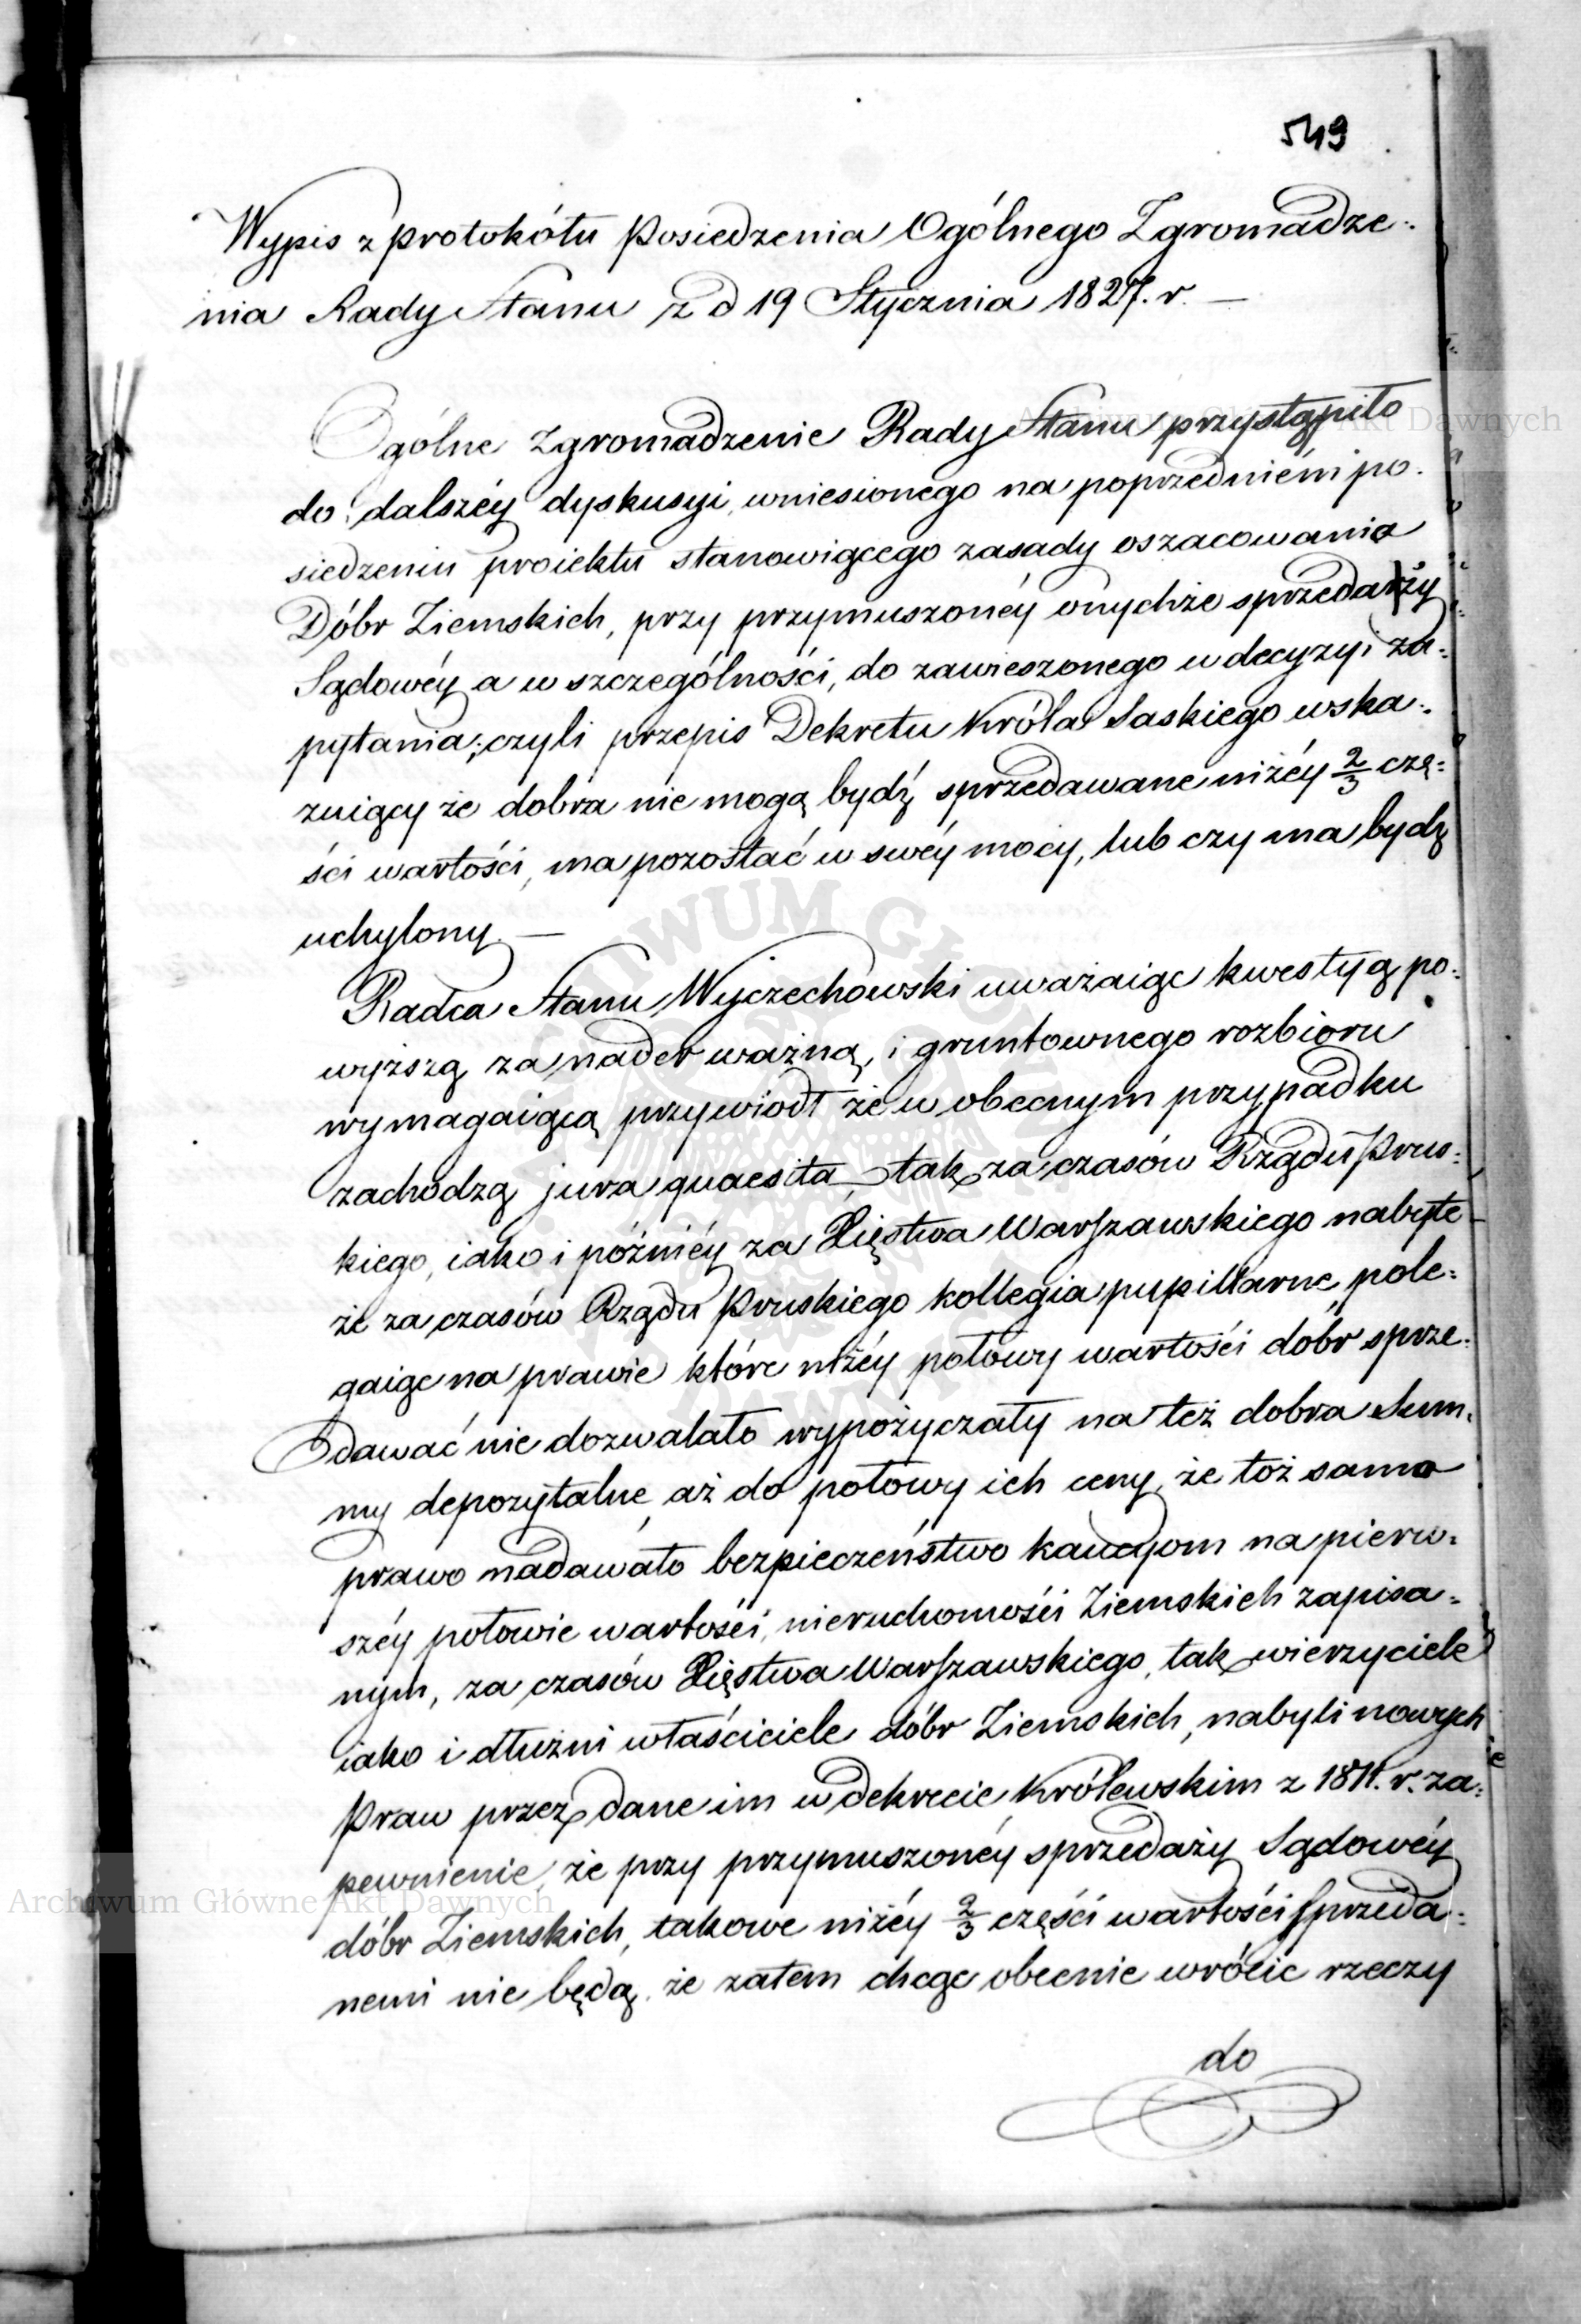 549
Wypis z protokółu Posiedzenia Ogólnego Zgromadze-
nia Rady Stanu z d 19 Stycznia 1827. r. —
Ogólne Zgromadzenie Rady Stanu przystąpiło
do dalszéy dyskusyi wniesionego na poprzedniém po-
siedzeniu proiektu stanowiącego zasady oszacowania
Dóbr Ziemskich, przy przymuszonéy onychże sprzedaży
Sądowéy a w szczególności, do zawieszonego w decyzyi za-
pytania; czyli przepis Dekretu Króla Saskiego wska-
zuiący że dobra nie mogą bydź sprzedawane niżéy 2/3 czę-
ści wartości, ma pozostać w swéy mocy, lub czy ma bydź
uchylony. —
Radca Stanu Wyczechowski uważaiąc kwestyą po-
wyższą za nader ważną, i gruntownego rozbioru
wymagaiącą przywiodł że w obecnym przypadku
zachodzą jura quaesita, tak za czasów Rządu Prus-
kiego, iako i późniéy za Xięstwa Warszawskiego nabyte
że za czasów Rządu Pruskiego kollegia pupillarne pole-
gaiąc na prawie które niżéy połowy wartości dóbr sprze-
dawać nie dozwalało wypożyczały na też dobra Sum-
my depozytalne, aż do połowy ich ceny, że toż samo
prawo nadawało bezpieczeństwo kaucyom na pierw-
széy połowie wartości, nieruchomości Ziemskich zapisa-
nym, za czasów Xięstwa Warszawskiego, tak wierzyciele
iako i dłużni właściciele dóbr Ziemskich, nabyli nowych
Praw przez dane im w dekrecie Królewskim z 1811. r. za-
pewnienie, że przy przymuszonéy sprzedaży Sądowéy
dóbr Ziemskich, takowe niżéy 2/3 części wartości sprzeda-
nemi nie będą. że zatem chcąc obecnie wrócić rzeczy
do
Archiwum Główne Akt Dawnych